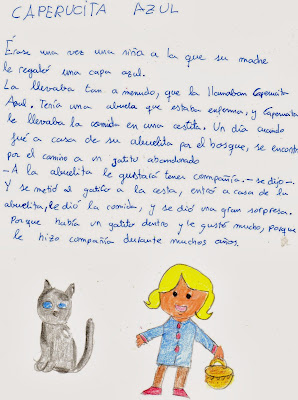 CAPERUCITA AZUL
Érase una vez una niña a la que su madre
le regaló una capa azul.
La llevaba tan a menudo, que la llamaban Caperucita
Azul. Tenía una abuela que estaba enferma, y Caperucita
le llevaba la comida en una cestita. Un día cuando
fué a casa de su abuelita por el bosque, se encontró
por el camino a un gatito abandonado
-A la abuelita le gustará tener compañía.-se dijo-.
Y se metió al gatito a la cesta, entró a casa de la
abuelita, le dió la comida, y se dió una gran sorpresa.
Porque había un gatito dentro y le gustó mucho, porque
le hizo compañía durante muchos años.